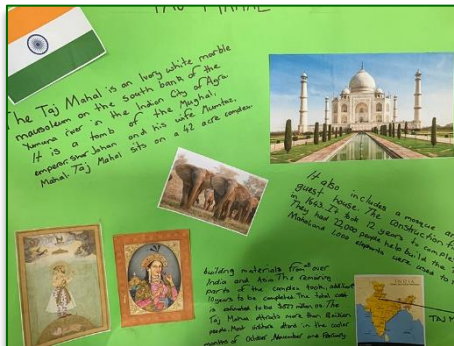 TAJ MAHAL
The Taj Mahal is an Ivory white marble
mausoleum on the south bank of the
Yumuna river in the Indian City of Agra.
It is a tomb of the Mughal,
emperor: Shar Jahan and his wife Mumtaz,
Mahal. Taj Mahal sits on a 42 acre complex
It also includes a mosque and
guest house. The construction
in 1643. It took 12 years to complete
They had 22,000 people help build the
Mahal and 1,000 elephants were used to
building materials from all over
India and Asia. The remaining
parts of the complex took additional
10 years to be completed. The total cost
is estimated to be $827 million. The
Taj Mahal attracts more than 8 million
people. Most visitors attend in the cooler
months of October, November and February
INDIA
TAJ M